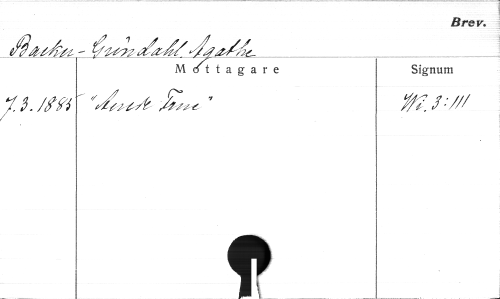 Brev.
Backer-Gröndahl, Agathe
Mottagare Signum
7.3.1885 " Frue" Wi. 3:111